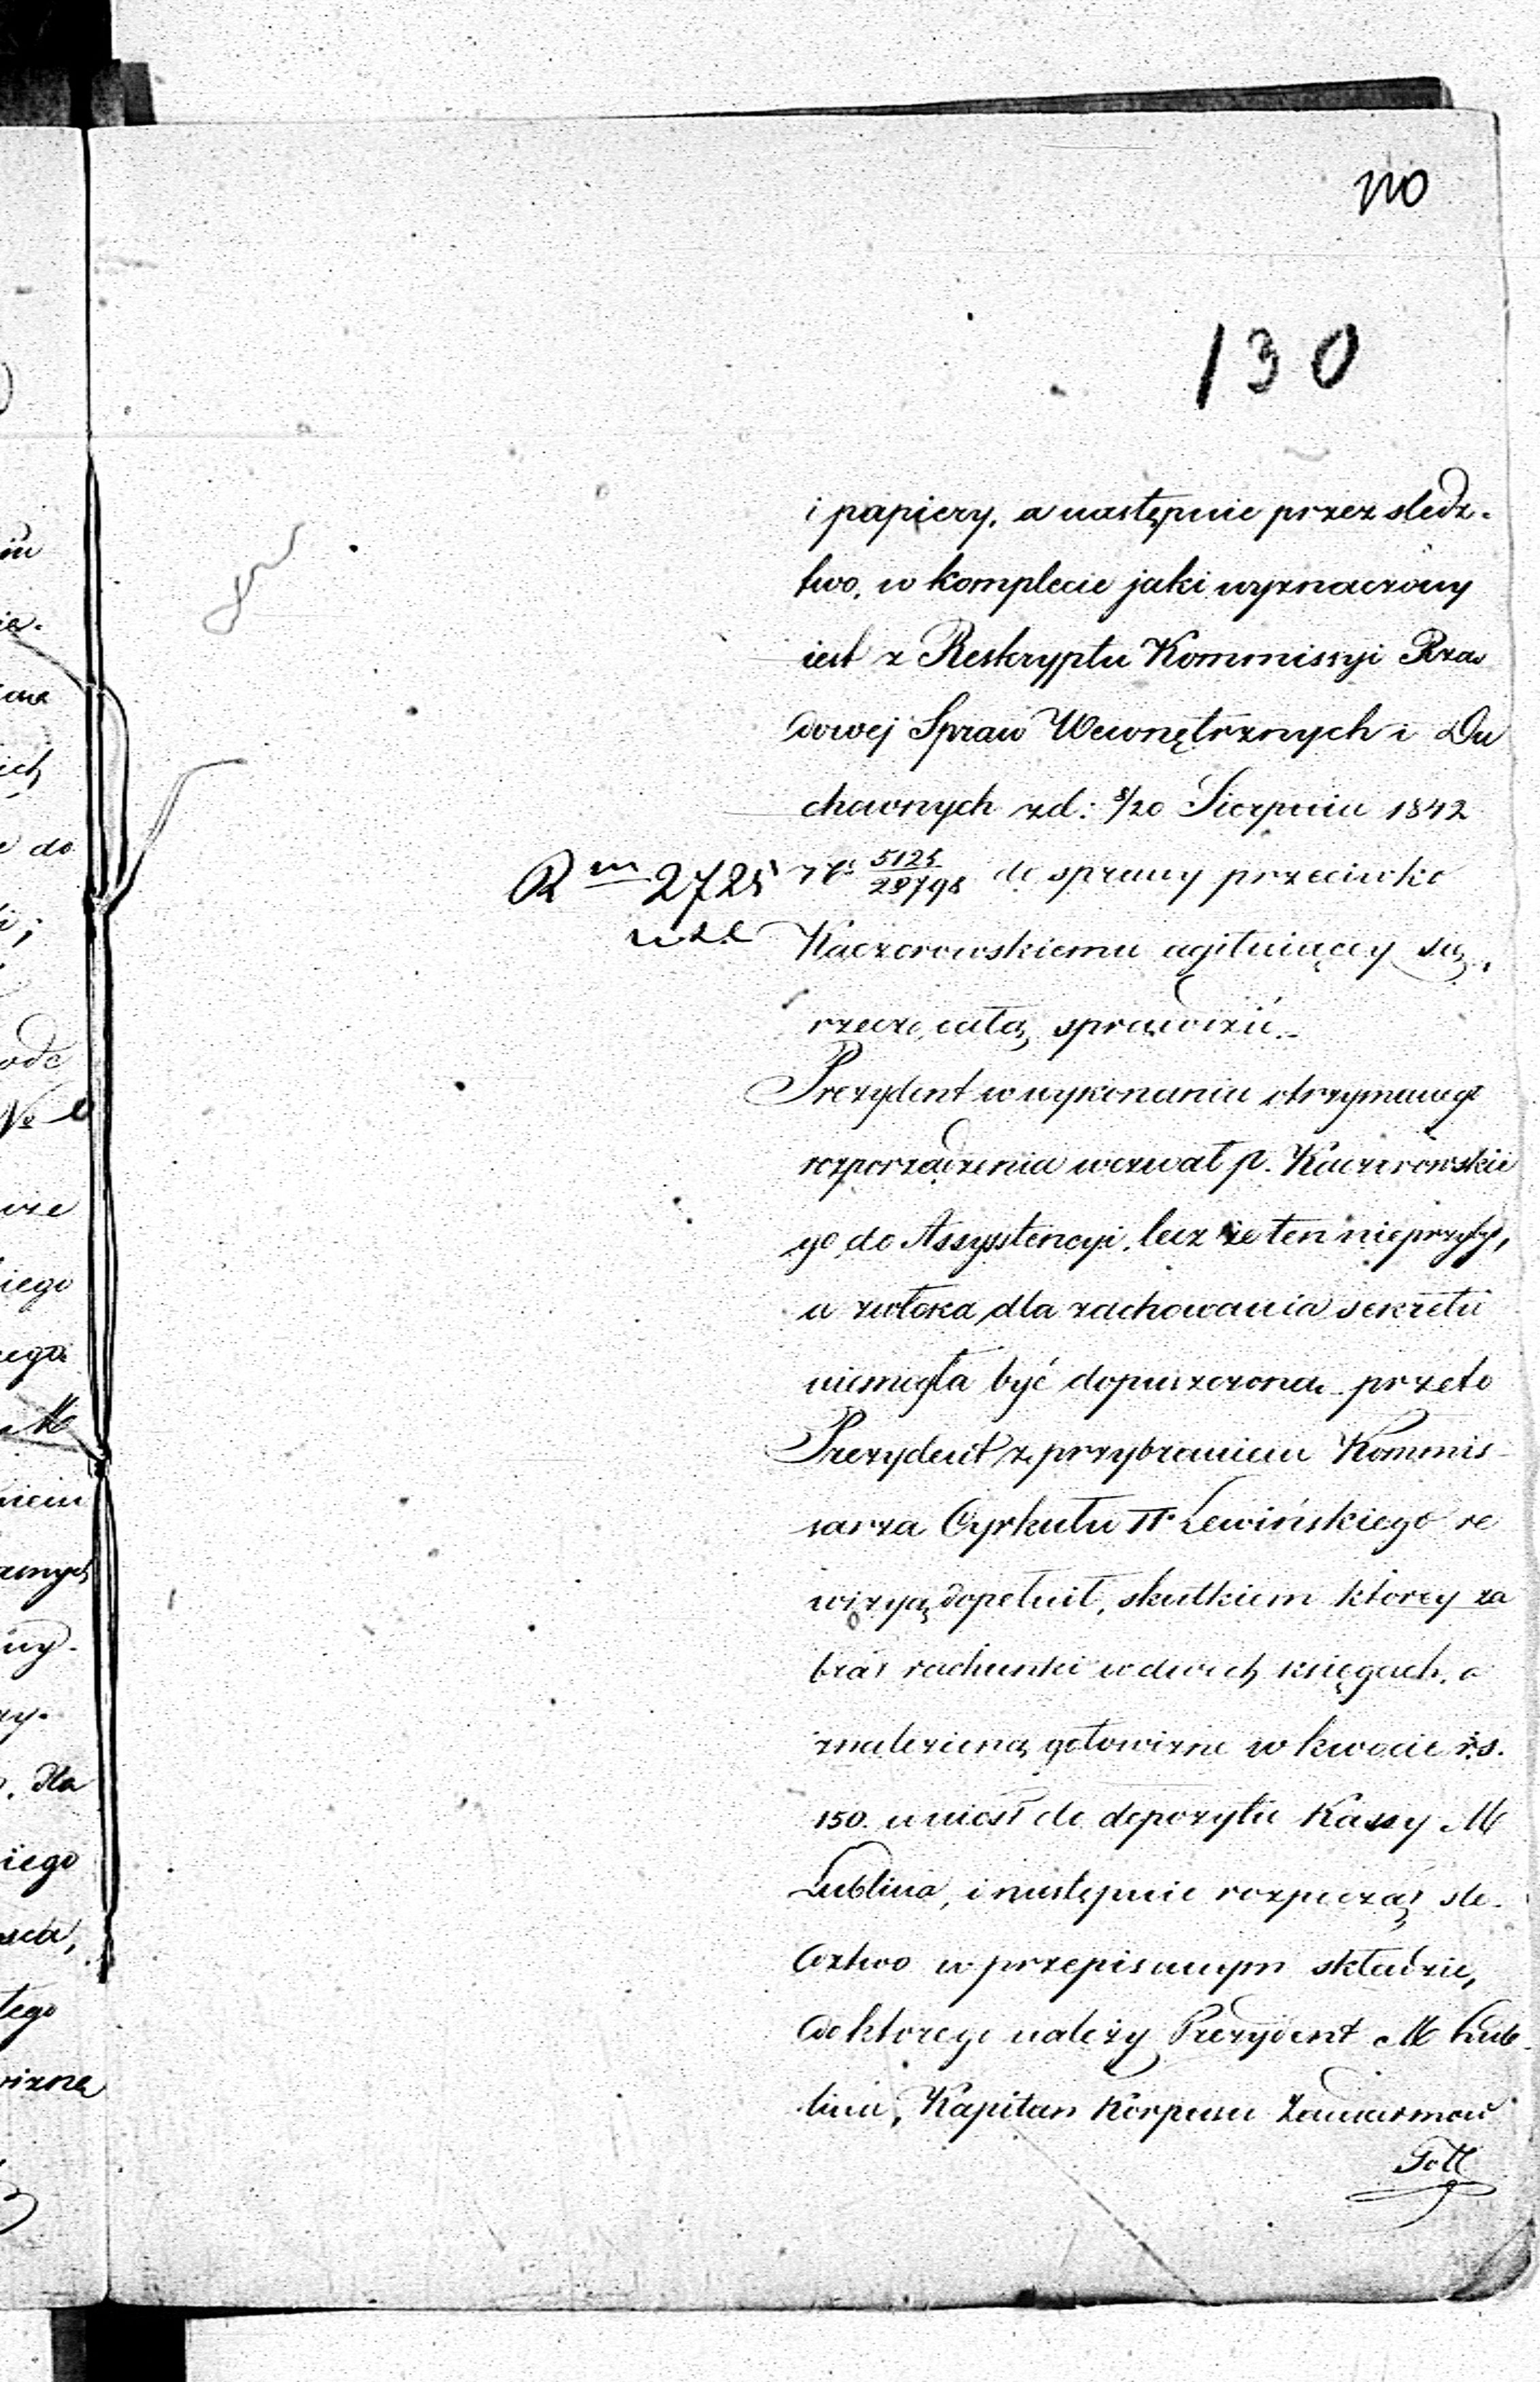 110
130
i papiery, a następnie przez sledz-
two, w komplecie jaki wyznaczony
iest z Reskryptu Kommissyi Rzą
dowej Spraw Wewnętrznych i Du
chownych z d: 8/20 Sierpnia 1842
R m 2725 N° 5125/28798 do sprawy przeciwko
Kaczorowskiemu agituiącey się,
rzecz całą sprawdził.-
Prezydent w wykonaniu otrzymanego
rozporządzenia wezwał p. Kaczorowskie
go do Assystencyi, lecz że ten nieprzybył,
a zwłoka dla zachowania sekretu
niemogła być dopuszczona przeto
Prezydent z przybraniem Kommis-
sarza Cyrkułu II° Lewińskiego re
wizyą dopełnił, skutkiem ktorey za
brał rachunki w dwoch księgach, a
znalezioną gotowiznę w kwocie r.s.
150. wniosł do depozytu Kassy M
Lublina, i następnie rozpoczął sle-
dztwo w przepisanym składzie,
do ktorego należy Prezydent M Lub-
lina, Kapitan Korpusu Żandarmow
Toll
in
ich
do
odc
№
wze
iego
M
niem
amych
dla
kiego
tego
wizną